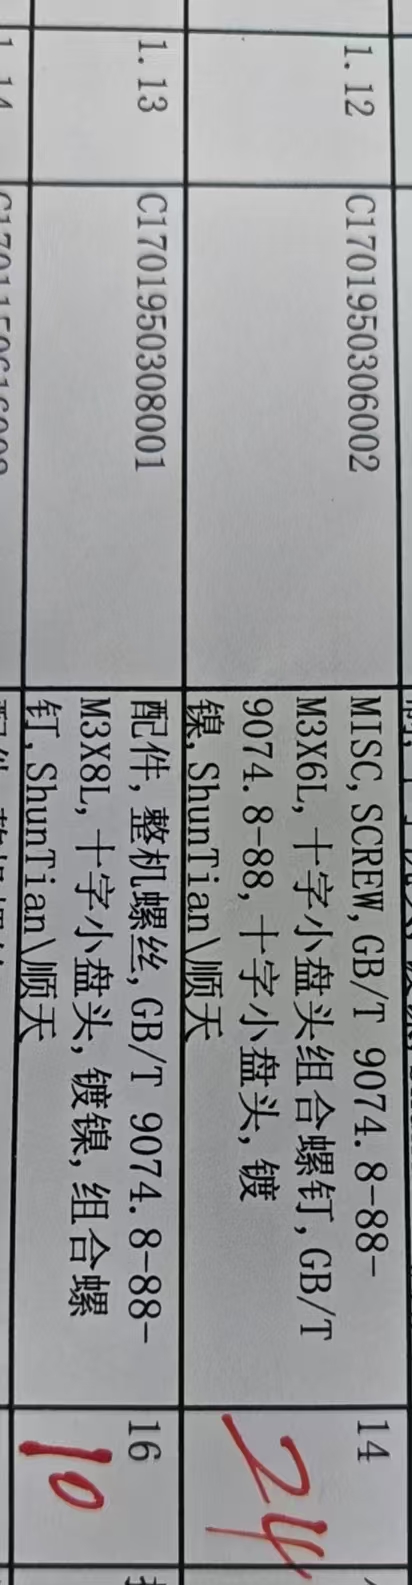 1.12
C1701950306002
MISC,SCREW,GB/T 9074.8-88-
M3X6L,十字小盘头组合螺钉,GB/T
9074.8-88,十字小盘头,镀
镍,ShunTian\顺天
14
24
1.13
C1701950308001
配件,整机螺丝,GB/T 9074.8-88-
M3X8L,十字小盘头,镀镍,组合螺
钉,ShunTian\顺天
16
10
1.14